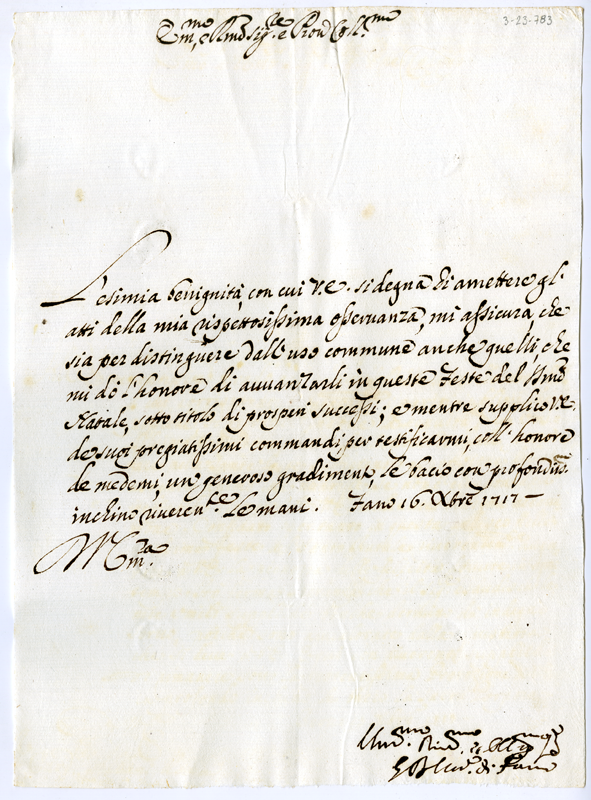 3-23-783
Em.mo e Rmo Sig.re e Pron Col.mo
L'esimia benignità, con cui V.E. si degna di amettere gl'
atti della mia rispettosissima osseruanza, mi assicura, che
sia per distinguere dall'uso commune anche quelli, che
mi dò l'honore di auuanzarli in queste Feste del SSmo
Natale, sotto titolo di prosperi successi; e mentre supplico V.E.
de suoi pregiatissimi commandi per testificarmi, coll'honore
de medemi, un generoso gradiment, le bacio con profondiss.mo
inchino riueren.te le mani. Fano 16. Xbre 1717 —
Um.mo
di Fano